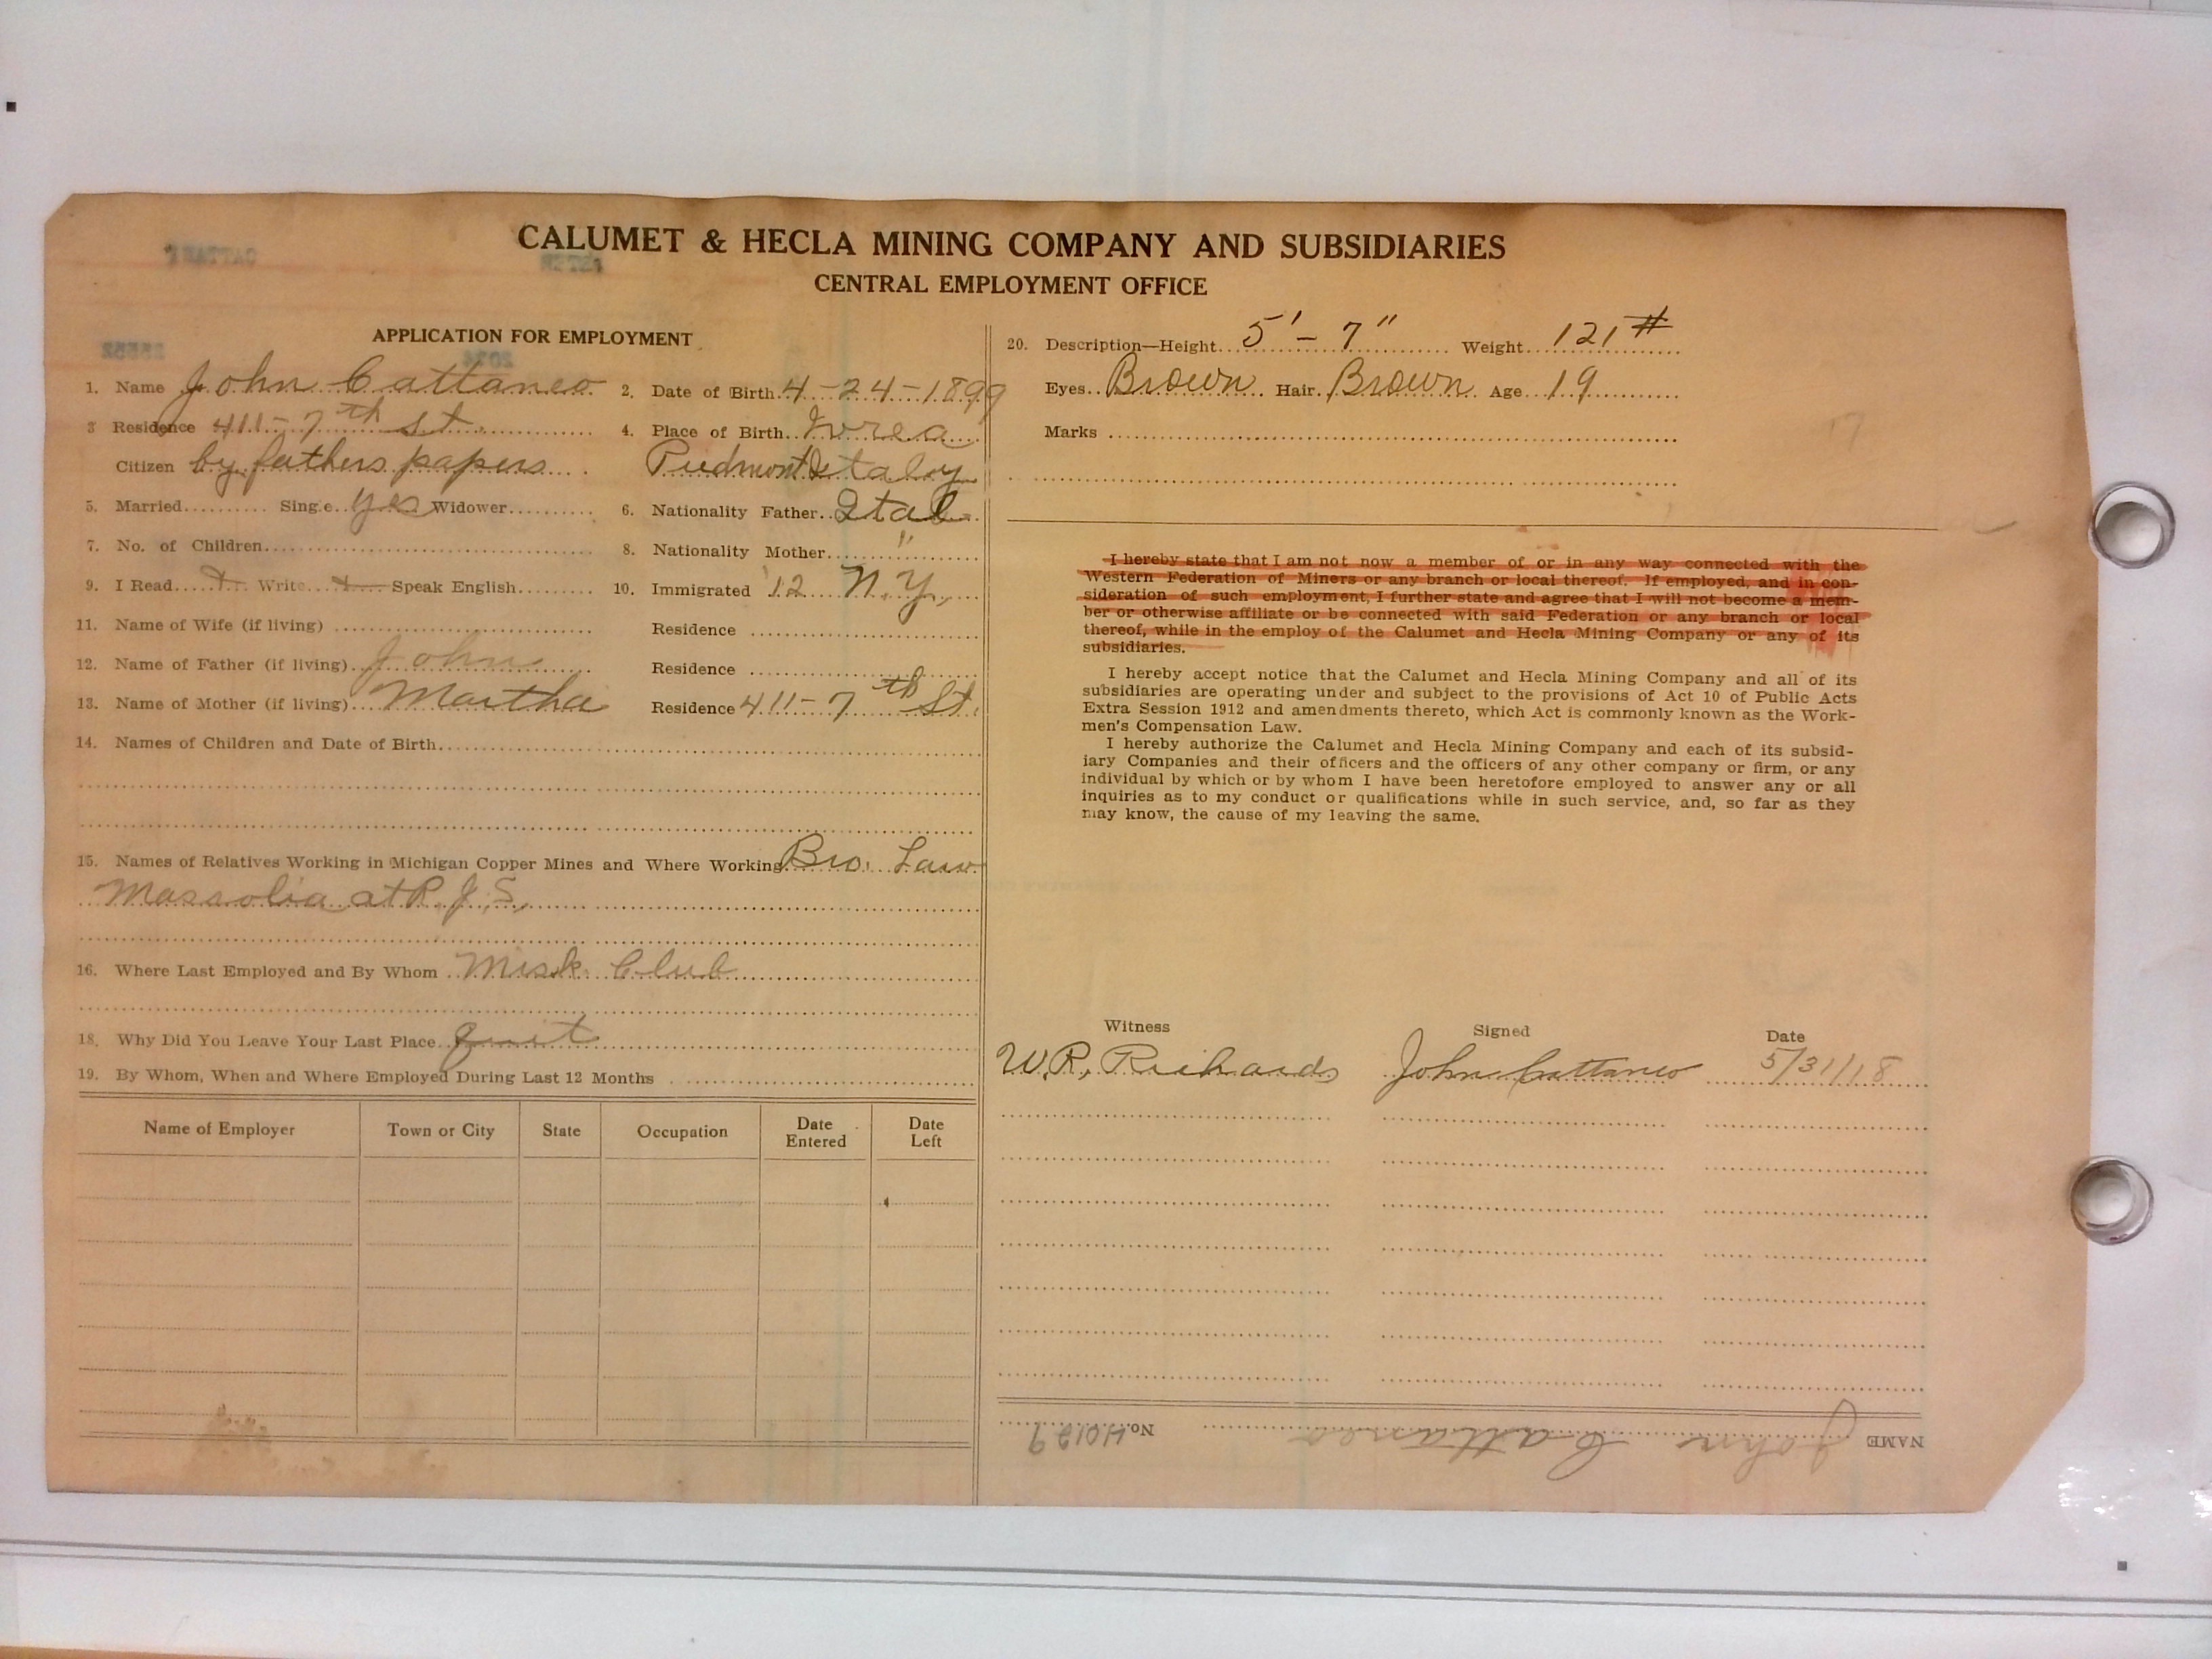 CALUMET & HECLA MINING COMPANY AND SUBSIDIARIES
CENTRAL EMPLOYMENT OFFICE
APPLICATION FOR EMPLOYMENT
1. Name John Cattaneo 2. Date of Birth 4-24-1899
3 Residence 411-7th St. 4. Place of Birth Ivrea
Citizen by fathers papers Piedmont Italy
5. Married Sing e yes Widower 6. Nationality Father Ital
7. No. of Children 8. Nationality Mother "
9. I Read Write Speak English 10. Immigrated '12 N.Y.
11. Name of Wife (if living) Residence
12. Name of Father (if living) John Residence
13. Name of Mother (if living) Martha Residence 411-7th St.
14. Names of Children and Date of Birth
15. Names of Relatives Working in Michigan Copper Mines and Where Working Bro. Law
Massolia at R. J. S.
16. Where Last Employed and By Whom Misk Club
18. Why Did You Leave Your Last Place quit
19. By Whom, When and Where Employed During Last 12 Months
Name of Employer Town or City State Occupation Date Entered Date Left
20. Description—Height 5'-7" Weight 121#
Eyes Brown Hair Brown Age 19
Marks
I hereby state that I am not now a member of or in any way connected with the
Western Federation of Miners or any branch or local thereof. If employed, and in con-
sideration of such employment, I further state and agree that I will not become a mem-
ber or otherwise affiliate or be connected with said Federation or any branch or local
thereof, while in the employ of the Calumet and Hecla Mining Company or any of its
subsidiaries.
I hereby accept notice that the Calumet and Hecla Mining Company and all of its
subsidiaries are operating under and subject to the provisions of Act 10 of Public Acts
Extra Session 1912 and amendments thereto, which Act is commonly known as the Work-
men's Compensation Law.
I hereby authorize the Calumet and Hecla Mining Company and each of its subsid-
iary Companies and their officers and the officers of any other company or firm, or any
individual by which or by whom I have been heretofore employed to answer any or all
inquiries as to my conduct or qualifications while in such service, and, so far as they
may know, the cause of my leaving the same.
Witness Signed Date
W.R. Richards John Cattaneo 5/31/18
NAME John Cattaneo No. 40129